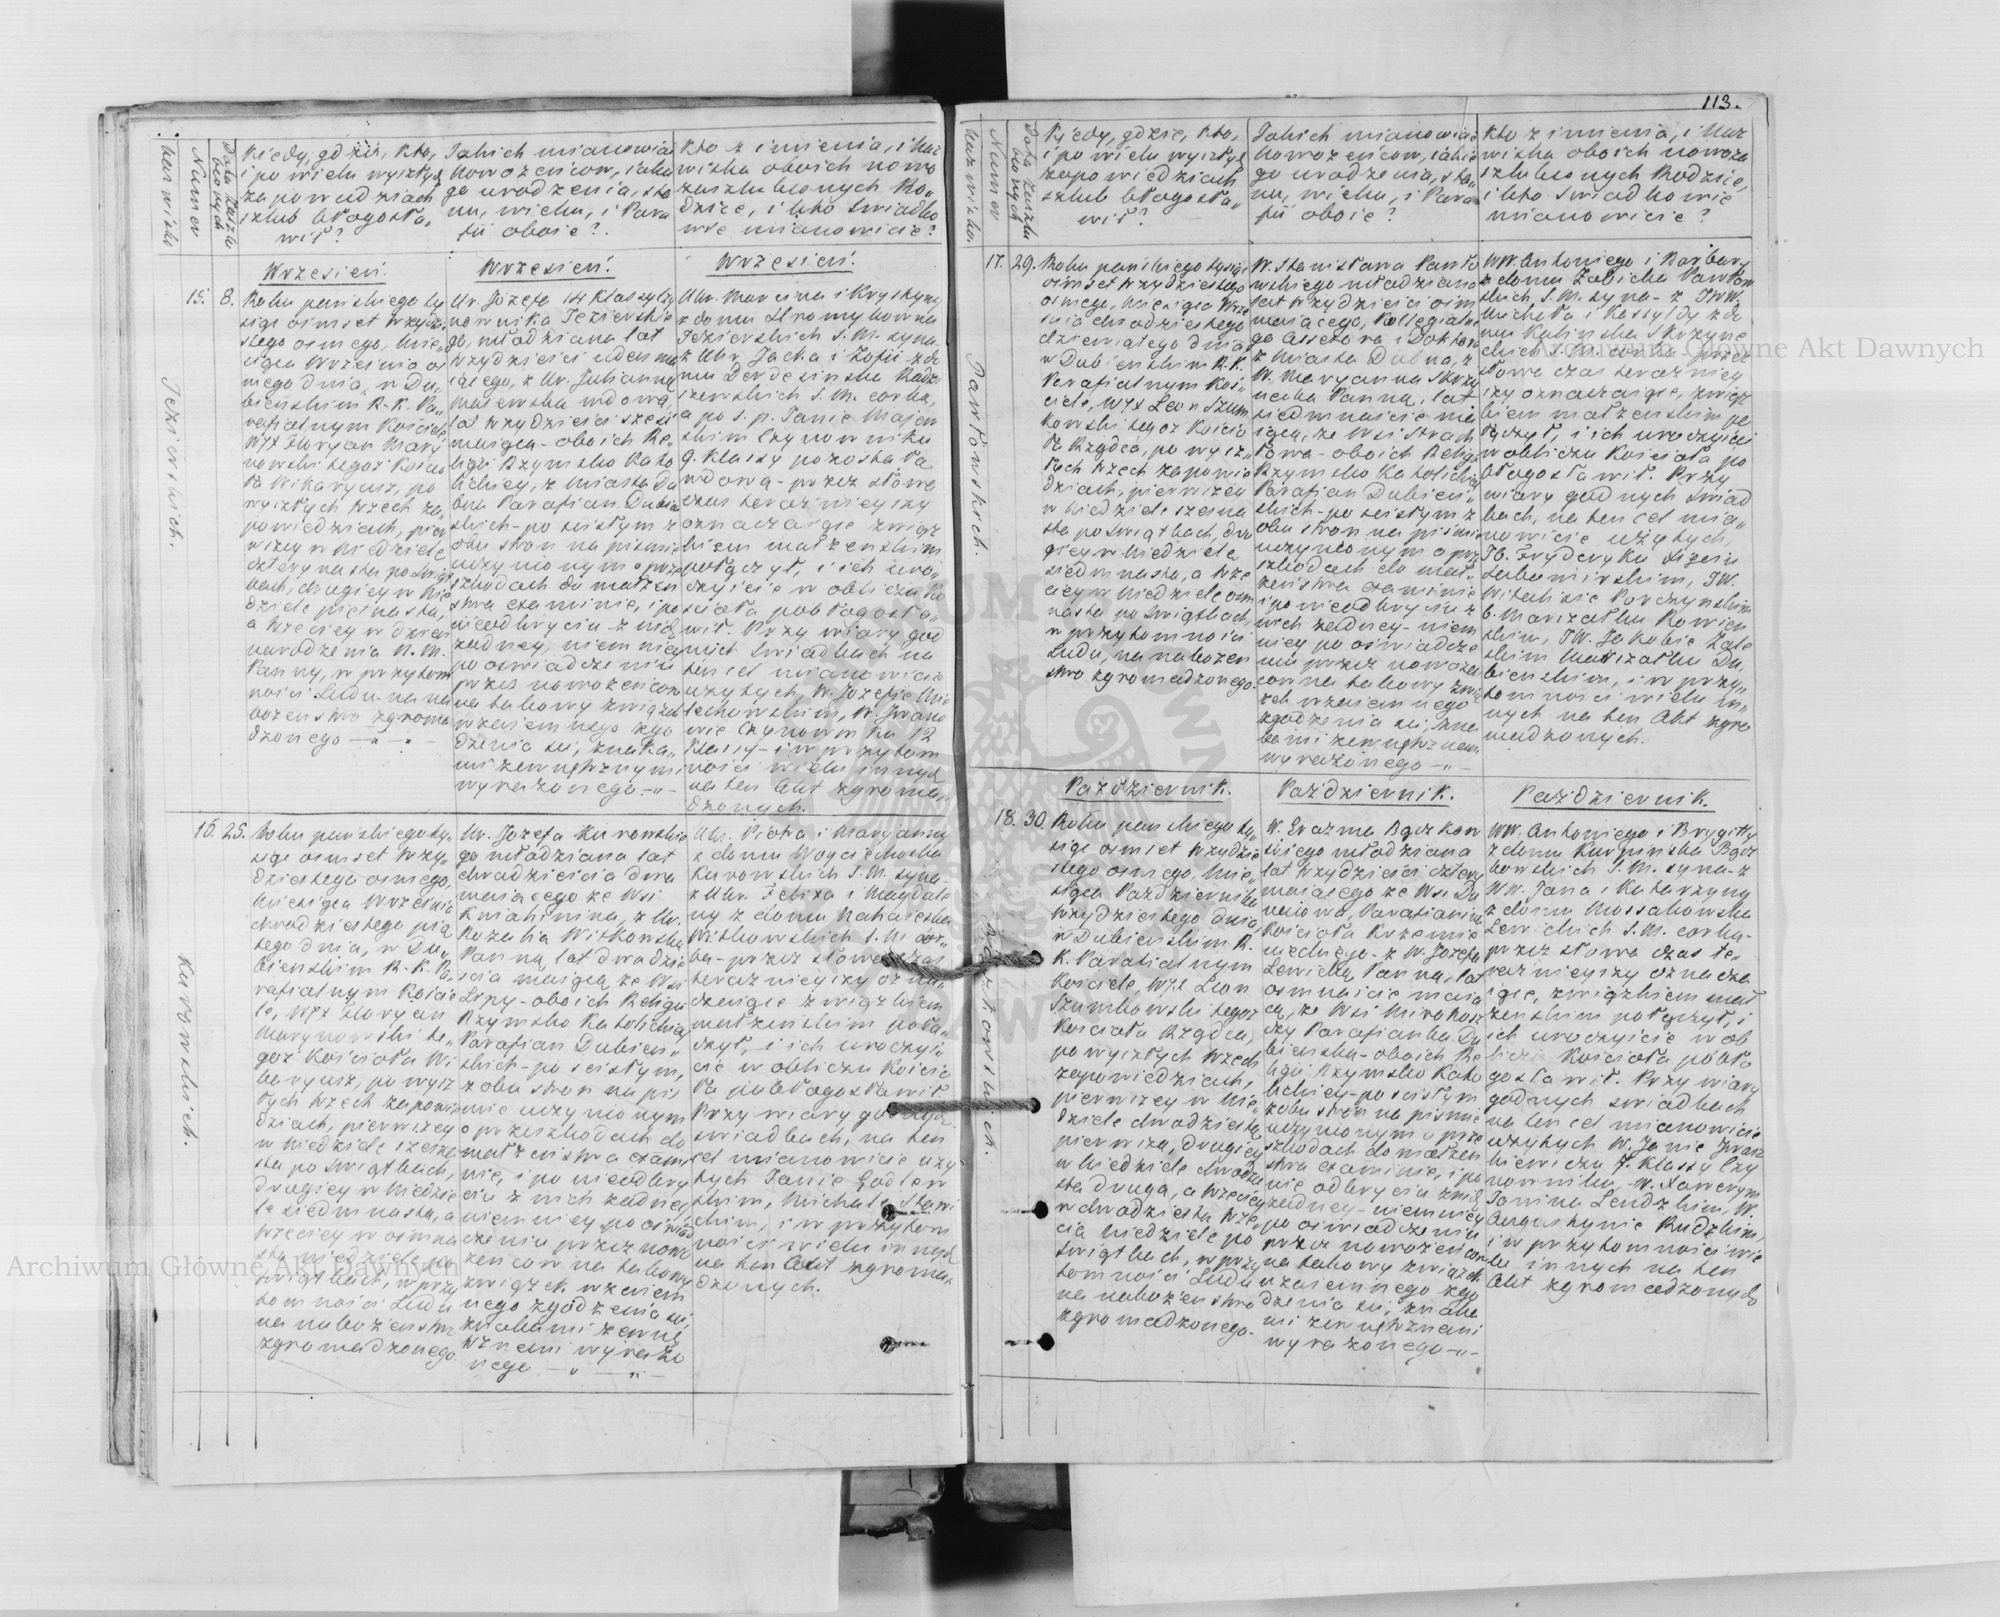 113.
Nazwiska
Numer
Data zaszłu
bionych
Kiedy, gdzie, kto,
i po wielu wyszłych
zapowiedziach
szlub błogosła„
wił?
Jakich mianowicie
nowożeńców, iakie
go urodzenia, sta
nu, wieku, i Para
fii oboie?
Kto z imienia, i Naz
wiska oboich nowo
zaszlubionych Ro„
dzice, i kto świadko
wie mianowicie?
Wrzesień.
Wrzesień.
Wrzesień.
Jezierskich.
15.
8.
Roku pańskiego ty
siąc ośmset trzydzie
stego osmego, mie„
siąca Września os
mego dnia, w Du„
bieńskim R. K. Pa„
rafialnym Kościele
WJX Floryan Mary
nowski tegoż Kościo
ła Wikaryusz, po
wyszłych trzech za„
powiedziach, pier
wszey w Niedzielę
czternastą po świąt
kach, drugiey w Nie
dzielę piętnastą,
a trzeciey w dzień
narodzenia N. M.
Panny, w przytom
ności Ludu na na
bożeństwo zgroma
dzonego
Ur. Józefa 14 Klassy Czy
nownika Jezierskie
go, młodziana lat
trzydzieści ieden ma
iącego, z Ur. Julianną
Majewską wdową
lat trzydzieści sześć
maiącą - oboich Re„
ligii Rzymsko Kato
lickiey, z Miasta Du
bna Parafian Dubień
skich - po ścisłym z
obu stron na piśmie
uczynionym o prze
szkodach do małżeń
stwa examinie, i po
nieodkryciu z nich
żadney, niemniey
po oświadczeniu
przez nowożeńców
na takowy związek
wzaiemnego zgo
dzenia się, znaka„
mi zewnętrznymi
wyrażonego
Uhr. Marcina i Krystyny
z domu Stromykowna
Jezierskich S. M. syna
z Uhr. Jacka i Zofii z do
mu Derdesinska Radzi
szewskich S. M. corką,
a po ś. p. Janie Majew
skim Czynowniku
9. Klassy pozostałą
wdową - przez słowa
czas teraznieyszy
oznaczaiące związ
kiem małżeńskim
połączył, i ich uro„
czyście w obliczu Ko
ścioła pobłogosła„
wił. Przy wiary god
nych świadkach na
ten cel mianowicie
użytych, W. Józefie Mie
lechowskim, W. Iwano
wie Czynownika 12
Klassy - i w przytom
ności wielu innych
na ten Akt zgroma„
dzonych.
Kurowskich.
16.
25.
Roku pańskiego ty„
siąc ośmset trzy„
dziestego osmego,
miesiąca Września
dwudziestego pią
tego dnia, w Du„
bieńskim R. K. Pa
rafialnym Koście
le, WJX Floryan
Marynowski te„
goż Kościoła Wi
karyusz, po wysz
łych trzech zapowie
dziach, pierwszey
w Niedzielę szesna
stą po świątkach,
drugiey w Niedzie
lę siedmnastą, a
trzeciey w ośmna
stą niedzielę po
świątkach, w przy
tomności Ludu
na nabożeństwo
zgromadzonego
Ur. Józefa Kurowskie
go młodziana lat
dwadzieścia dwa
maiącego ze Wsi
Kniahinina, z Ur.
Rozalią Witkowską
Panną lat dwadzie
ścia maiącą ze Wsi
Lipy - oboich Religii
Rzymsko Katolickiey
Parafian Dubień„
skich - po ścisłym,
z obu stron na piś
mie uczynionym
o przeszkodach do
małżeństwa exami
nie, i po nieodkry
ciu z nich żadney
niemniey po oświad
czeniu przez nowo
żeńców na takowy
związek wzaiem
nego zgodzenia się,
znakami zewnę
trznemi wyrażo
nego
Uhr. Piotra i Maryanny
z domu Woyciechoska
Kurowskich S. M. syna -
z Uhr. Felixa i Magdale
ny z domu Nahaieska
Witkowskich S. M. cór„
ką - przez słowa czas
teraznieyszy ozna„
czaiące związkiem
małżeńskim połą„
czył, i ich uroczyś
cie w obliczu Kościo
ła pobłogosławił
Przy wiary godnych
świadkach, na ten
cel mianowicie uży
tych Janie Godlew
skim, Michale Sławi
ckim, i w przytom
ności wielu innych
na ten Akt zgroma„
dzonych.
Nazwiska.
Numer
Data zaszlu
bionych
Kiedy, gdzie, kto,
i po wielu wyszłych
zapowiedziach
szlub błogosła„
wił?
Jakich mianowicie
nowożeńców, iakie
go urodzenia, sta„
nu, wieku, i Para
fii oboie?
Kto z imienia, i Naz
wiska oboich nowoza
szlubionych Rodzice,
i kto świadkowie
mianowicie?
Pawłowskich.
17.
29.
Roku pańskiego tysiąc
ośmset trzydziestego
osmego, miesiąca Wrze
śnia dwudziestego
dziewiątego dnia,
w Dubieńskim R. K.
Parafialnym Koś„
ciele, WJX Leon Szum
kowski tegoż Kościo
ła Rządca, po wysz„
łych trzech zapowie
dziach, pierwszey
w Niedzielę szesna
stą po świątkach, dru
giey w Niedzielę
siedmnastą, a trze
ciey w Niedzielę ośm
nastą po świątkach,
w przytomności
Ludu, na nabożeń
stwo zgromadzonego.
W. Stanisława Pawło
wskiego młodziana
lat trzydzieści ośm
maiącego, Kollegialne
go Assesora i Doktora
z Miasta Dubna, z
W. Maryanną Skrzy
necką Panną, lat
siedmnaście ma
iącą, ze Wsi Strach
łowa - oboich Religii
Rzymsko Katolickiey
Parafian Dubień„
skich - po ścisłym z
obu stron na piśmie
uczynionym o prze
szkodach do mał„
żeństwa examinie
i po nieodkryciu z
nich żadney - niem
niey po oświadcze
niu przez nowożeń
ców na takowy zwią
zek wzaiemnego
zgodzenia się, zna
kami zewnętrznemi
wyrażonego
WW. Antoniego i Barbary
z domu Zabicka Pawłow
skich S. M. syna - z JWW.
Michała i Kassyldy z do
mu Kalinska Skrzyne
ckich S. M. corką - przez
słowa czas teraznieyszy
oznaczaiące, związ
kiem małżeńskim po
łączył, i ich uroczyście
w obliczu Kościoła po
błogosławił. Przy
wiary godnych świad
kach, na ten cel mia„
nowicie użytych,
JO. Fryderyku Xięciu
Lubomirskim, JW.
Witalisie Porczynskim
b. Marszałku Rowień
skim, JW. Jakobie Zale
skim Marszałku Du„
bieńskim, i w przy„
tomności wielu in„
nych na ten Akt zgro
madzonych.
Październik.
Październik.
Październik.
Bączkowskich.
18.
30.
Roku pańskiego ty„
siąc ośmset trzydzie
stego osmego, mie„
siąca Października
trzydziestego dnia,
w Dubieńskim R.
K. Parafialnym
Kościele, WJX Leon
Szumkowski tegoż
Kościoła Rządca,
po wyszłych trzech
zapowiedziach,
pierwszey w Nie„
dzielę dwudziestą
pierwszą, drugiey
w Niedzielę dwudzie
stą drugą, a trzeciey
w dwudziestą trze„
cią Niedzielę po
świątkach, w przy
tomności Ludu
na nabożeństwo
zgromadzonego.
W. Erazma Bączkow
skiego młodziana
lat trzydzieści cztery
maiącego ze Wsi Du
naiowa, Parafianina
Kościoła Krzemie
nieckiego - z W. Józefą
Lewicką, Panną, lat
ośmnaście maią
cą, ze Wsi Mirohosz
czy Parafianką Du
bieńską - oboich Re
ligii Rzymsko Kato
lickiey - po ścisłym
z obu stron na piśmie
uczynionym o prze
szkodach do małżeń
stwa examinie, i po
nieodkryciu z nich
żadney - niemniey
po oświadczeniu
przez nowożeńców
na takowy związek
wzaiemnego zgo
dzenia się, znaka
mi zewnętrznemi
wyrażonego
WW. Antoniego i Brygitty
z domu Karpinska Bącz
kowskich S. M. syna - z
WW. Jana i Katarzyny
z domu Mossakowska
Lewickich S. M. corką -
przez słowa czas te„
raznieyszy oznacza
iące, związkiem mał
żeńskim połączył, i
ich uroczyście w ob
liczu Kościoła pobło
gosławił. Przy wiary
godnych świadkach
na ten cel mianowicie
użytych W. Janie Jwasz
kiewiczu 7. Klassy Czy
nowniku, W. Xawerym
Janinie Lendzkim, W.
Augustynie Rudzkim,
i w przytomności wie
lu innych na ten
Akt zgromadzonych
Archiwum Główne Akt Dawnych
Archiwum Główne Akt Dawnych
Archiwum Główne Akt Dawnych